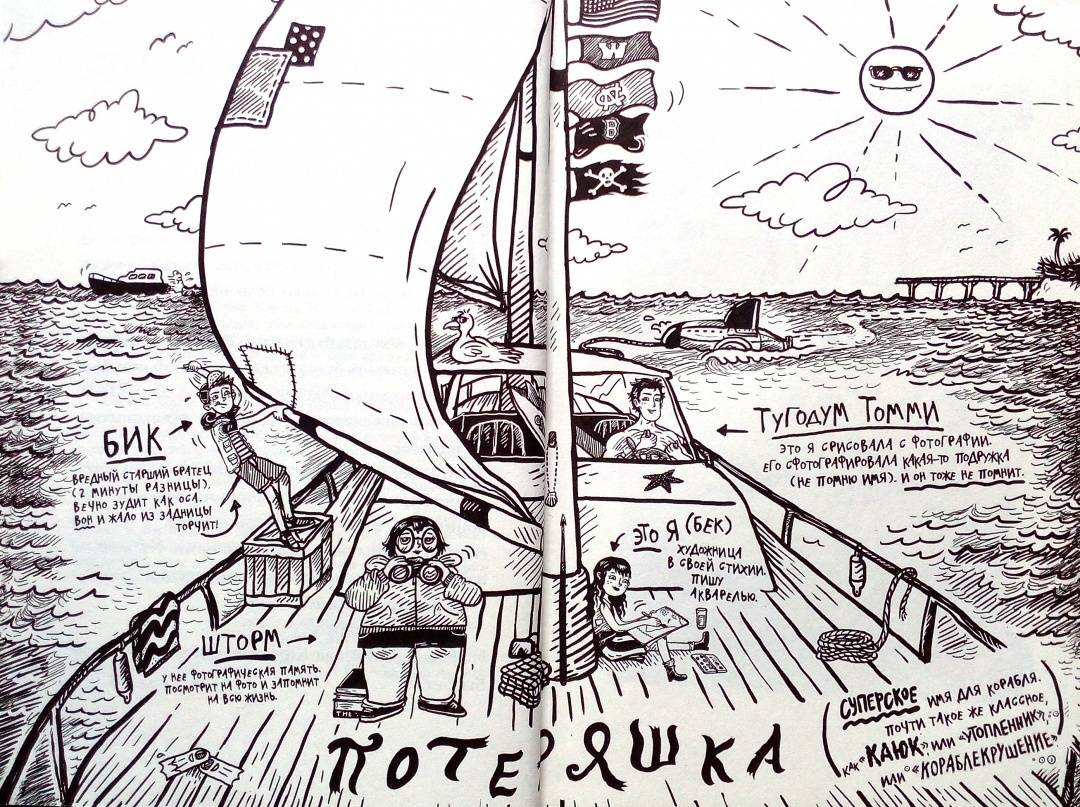 W
B
БИК
ВРЕДНЫЙ СТАРШИЙ БРАТЕЦ
(2 МИНУТЫ РАЗНИЦЫ).
ВЕЧНО ЗУДИТ КАК ОСА.
ВОН И ЖАЛО ИЗ ЗАДНИЦЫ
ТОРЧИТ!
ТУГОДУМ ТОММИ
ЭТО Я СРИСОВАЛА С ФОТОГРАФИИ.
ЕГО СФОТОГРАФИРОВАЛА КАКАЯ-ТО ПОДРУЖКА
(НЕ ПОМНЮ ИМЯ). И ОН ТОЖЕ НЕ ПОМНИТ.
ЭТО Я (БЕК)
ХУДОЖНИЦА
В СВОЕЙ СТИХИИ.
ПИШУ
АКВАРЕЛЬЮ.
ШТОРМ
У НЕЕ ФОТОГРАФИЧЕСКАЯ ПАМЯТЬ.
ПОСМОТРИТ НА ФОТО И ЗАПОМНИТ
НА ВСЮ ЖИЗНЬ.
THE
ПОТЕРЯШКА
(СУПЕРСКОЕ ИМЯ ДЛЯ КОРАБЛЯ.
ПОЧТИ ТАКОЕ ЖЕ КЛАССНОЕ,
КАК «КАЮК» ИЛИ «УТОПЛЕННИК»,
ИЛИ «КОРАБЛЕКРУШЕНИЕ»)